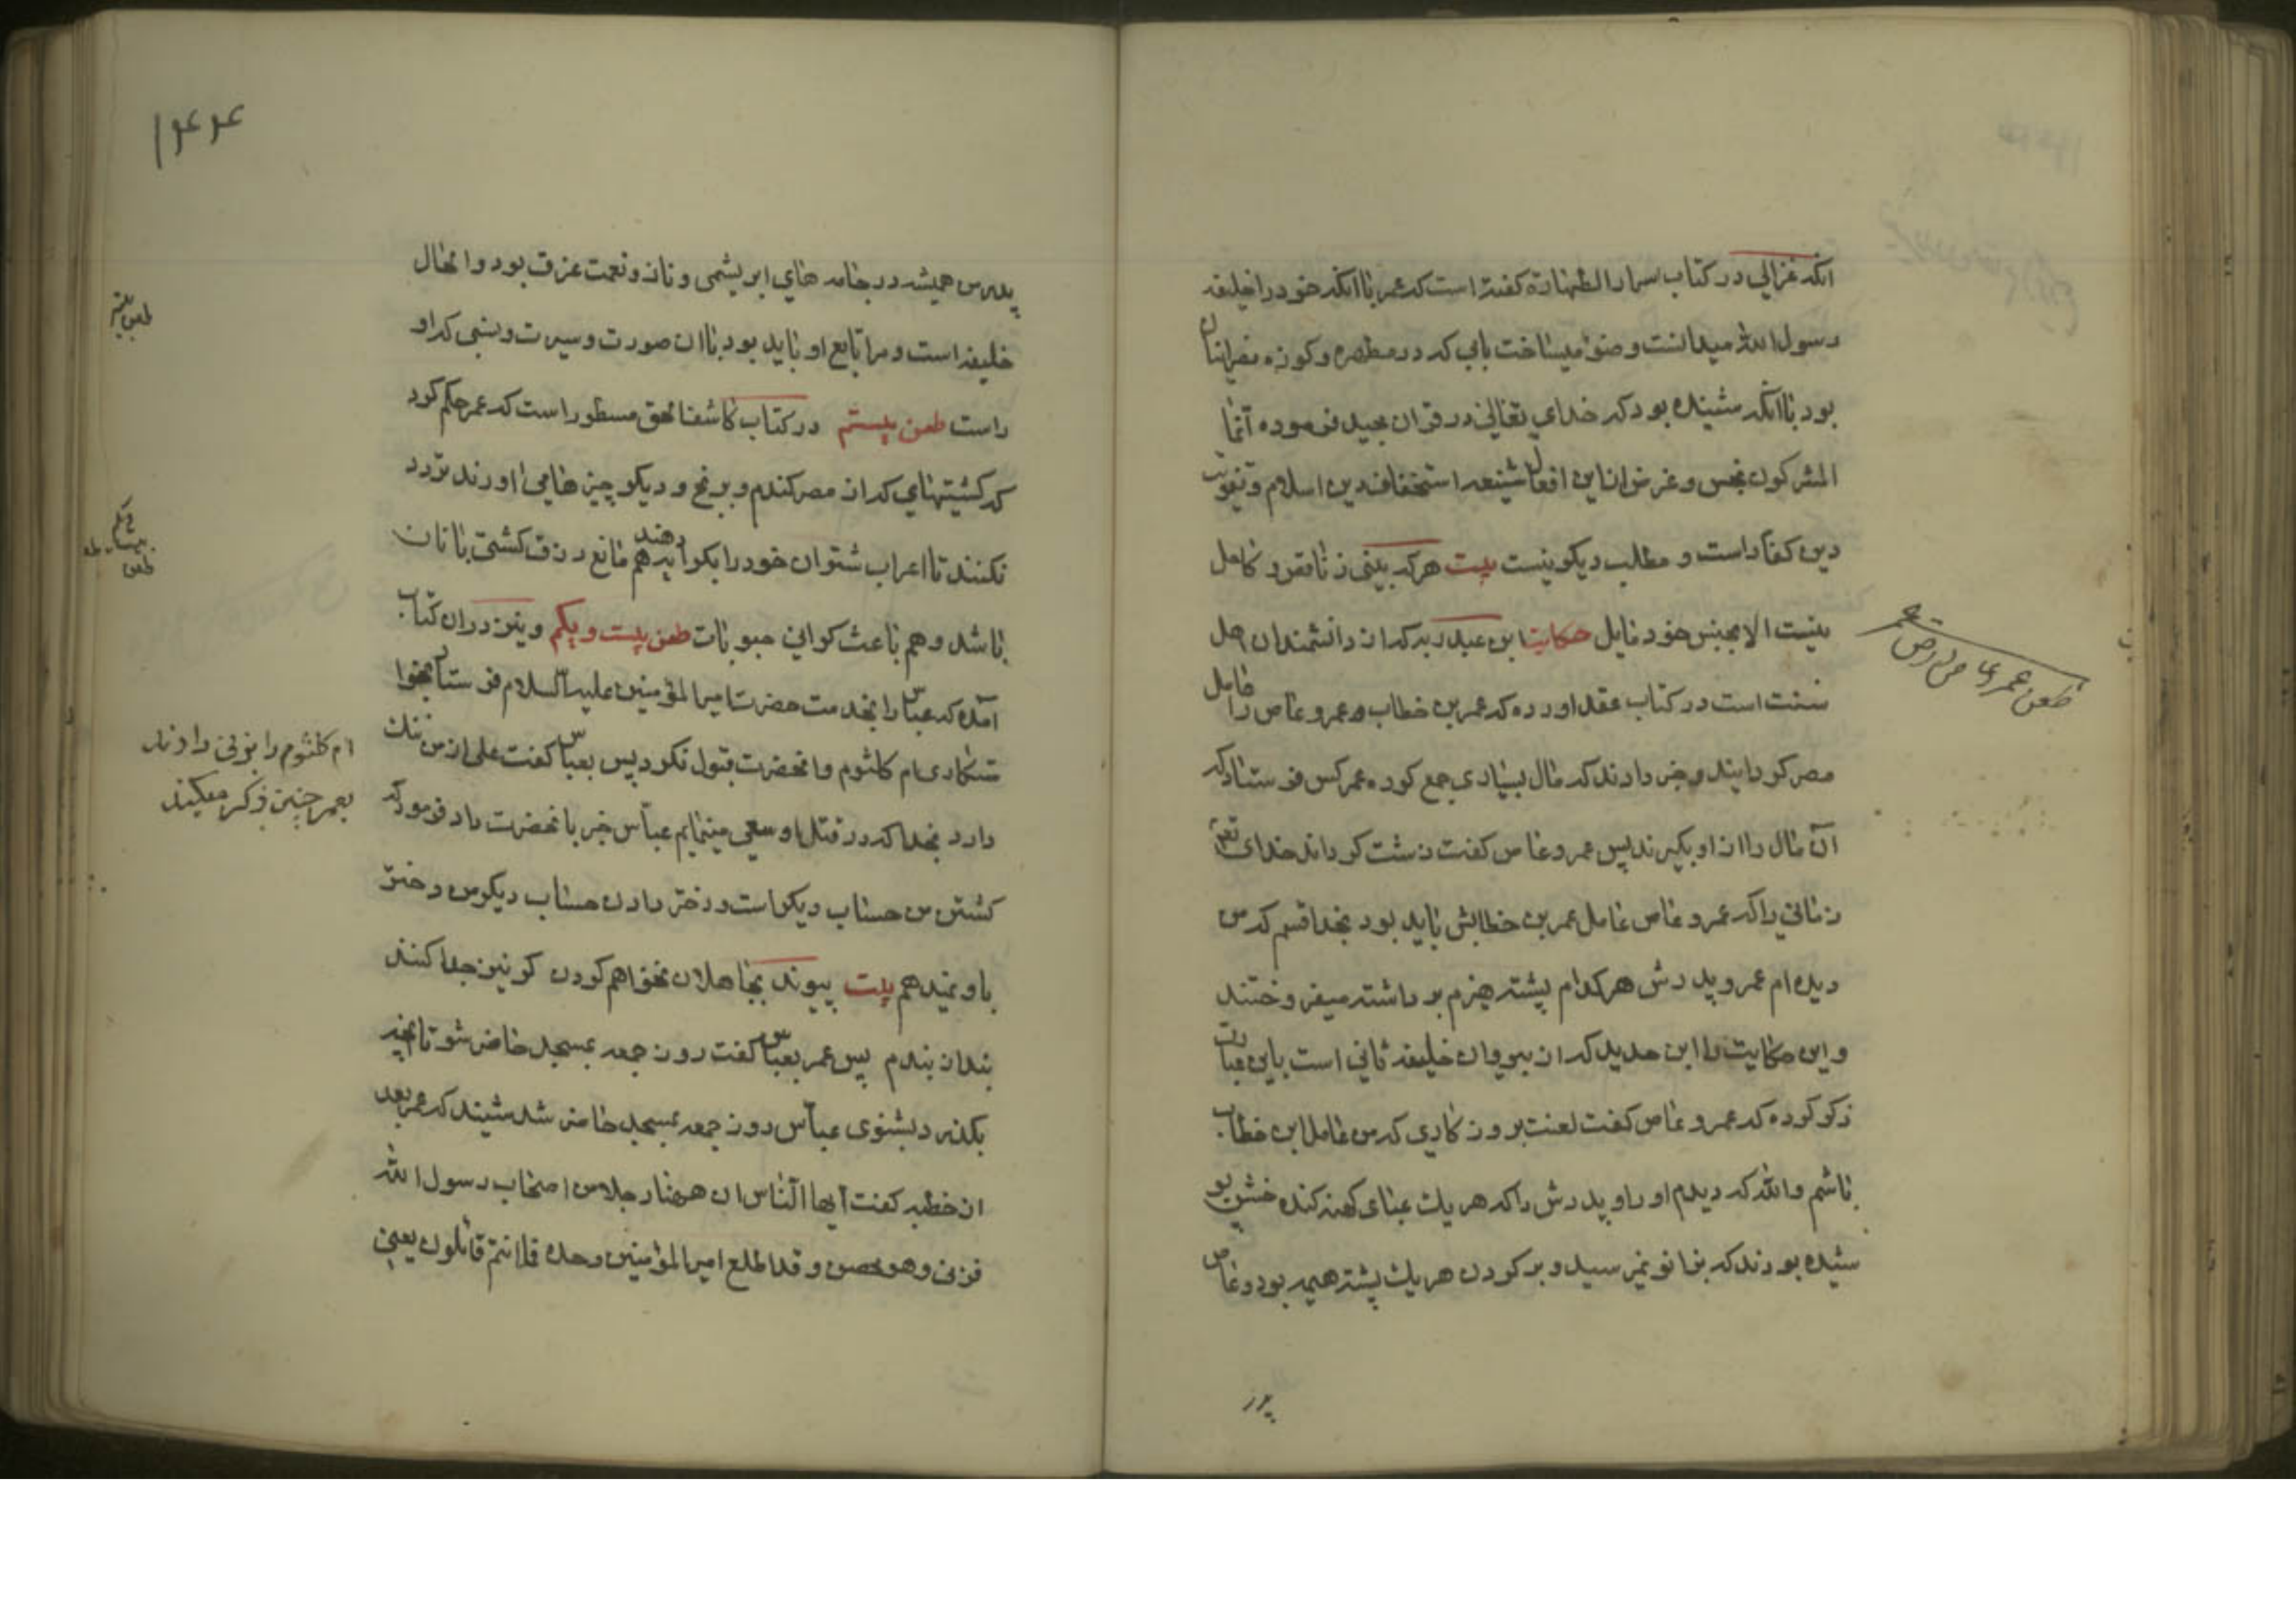 انکه غزالی در کتاب اسرار الطهارة کفته است که عمر با انکه خود را خلیفه
رسول الله میدانست وضو میساخت بابی که در مطهره و کوزه نصرانیان
بود با انکه شنیده بود که خدای تعالی در قران مجید فرموده انما
المشرکون نجس و غرض از این افعال شنیعه استخفاف دین اسلام و تقویت
دین کفار است و مطلب دیکر نیست بیت هر که بینی ز ناقص و کامل
نیست الا بجنس خود مایل حکایت ابن عبد ربه که از دانشمندان اهل
سنت است در کتاب عقد اورده که عمر بن خطاب عمرو عاص را عامل
مصر کردانید و خبر دادند که مال بسیاری جمع کرده عمر کس فرستاد که
آن مال را از او بکیرند پس عمرو عاص کفت زشت کرداند خدای تعالی
زمانی را که عمرو عاص عامل عمر بن خطابش باید بود بخدا قسم که من
دیده ام عمر و پدرش هر کدام پشته هیزم بر داشته میفروختند
و این حکایت را ابن حدید که از پیروان خلیفه ثانی است باین عبارت
ذکر کرده که عمرو عاص کفت لعنت بر روزکاری که من عامل ابن خطاب
باشم والله که دیدم او را و پدرش را که هر یک عبای کهنه کنده خشن پو
شیده بودند که بزانو نمیرسید و بر کردن هر یک پشته هیمه بود و عاص
پدر
طعن عمرو عاص
۱۴۴
پدرم همیشه در جامه های ابریشمی و ناز و نعمت غرق بود و الحال
خلیفه است و مرا تابع او باید بود با ان صورت و سیرت و نسبی که او
راست طعن بیستم در کتاب کاشف الحق مسطور است که عمر حکم کرد
که کشتیهای که از مصر کندم و برنج و دیکر چیزها می اورند تردد
نکنند تا اعراب شتران خود را بکرایه دهند هم مانع رزق کشتی بانان
باشد و هم باعث کرانی حبوبات طعن بیست و یکم و نیز در ان کتاب
آمده که عباس را بخدمت حضرت امیر المؤمنین علیه السلام فرستاد بخوا
ستکاری ام کلثوم و انحضرت قبول نکرد پس بعباس کفت علی از من ننک
دارد بخدا که در قتل او سعی مینمایم عباس خبر بانحضرت داد فرمود که
کشتن من حساب دیکر است و دختر دادن حساب دیکر من دختر
باو نمیدهم بیت پیوند بجاهلان نخواهم کردن کر نیز جدا کنند
بند از بندم پس عمر بعباس کفت روز جمعه بمسجد حاضر شو تا انچه
بکذرد بشنوی عباس روز جمعه بمسجد حاضر شد شنید که عمر بعد
از خطبه کفت ایها الناس ان ههنا رجلا من اصحاب رسول الله
قد زنی و هو محصن و قد اطلع امیر المؤمنین وحده فما انتم قائلون یعنی
طعن بیستم
طعن بیست و یکم
ام کلثوم را بزنی دادند
بعمر چنین ذکر میکنند